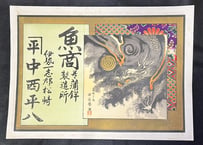 魚商
并蒲鉾
製造所
伊勢一志郡松崎
平中西平八